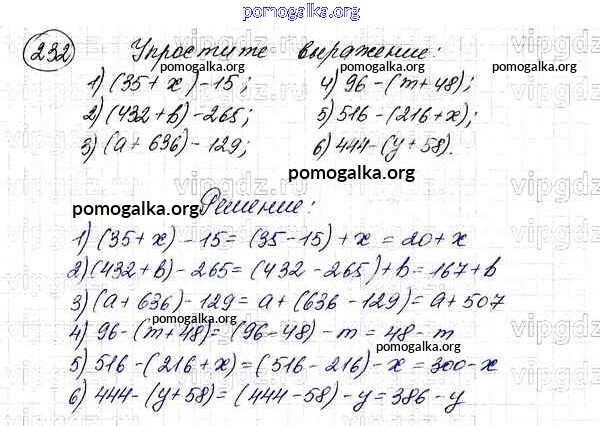 pomogalka.org
232 Упростите выражение:
pomogalka.org pomogalka.org
1) (35 + x) - 15; 4) 96 - (m + 48);
2) (432 + b) - 265; 5) 516 - (216 + x);
3) (a + 636) - 129; 6) 444 - (y + 58).
pomogalka.org
pomogalka.org Решение:
1) (35 + x) - 15 = (35 - 15) + x = 20 + x
2) (432 + b) - 265 = (432 - 265) + b = 167 + b
3) (a + 636) - 129 = a + (636 - 129) = a + 507
4) 96 - (m + 48) = (96 - 48) - m = 48 - m
pomogalka.org pomogalka.org
5) 516 - (216 + x) = (516 - 216) - x = 300 - x
6) 444 - (y + 58) = (444 - 58) - y = 386 - y